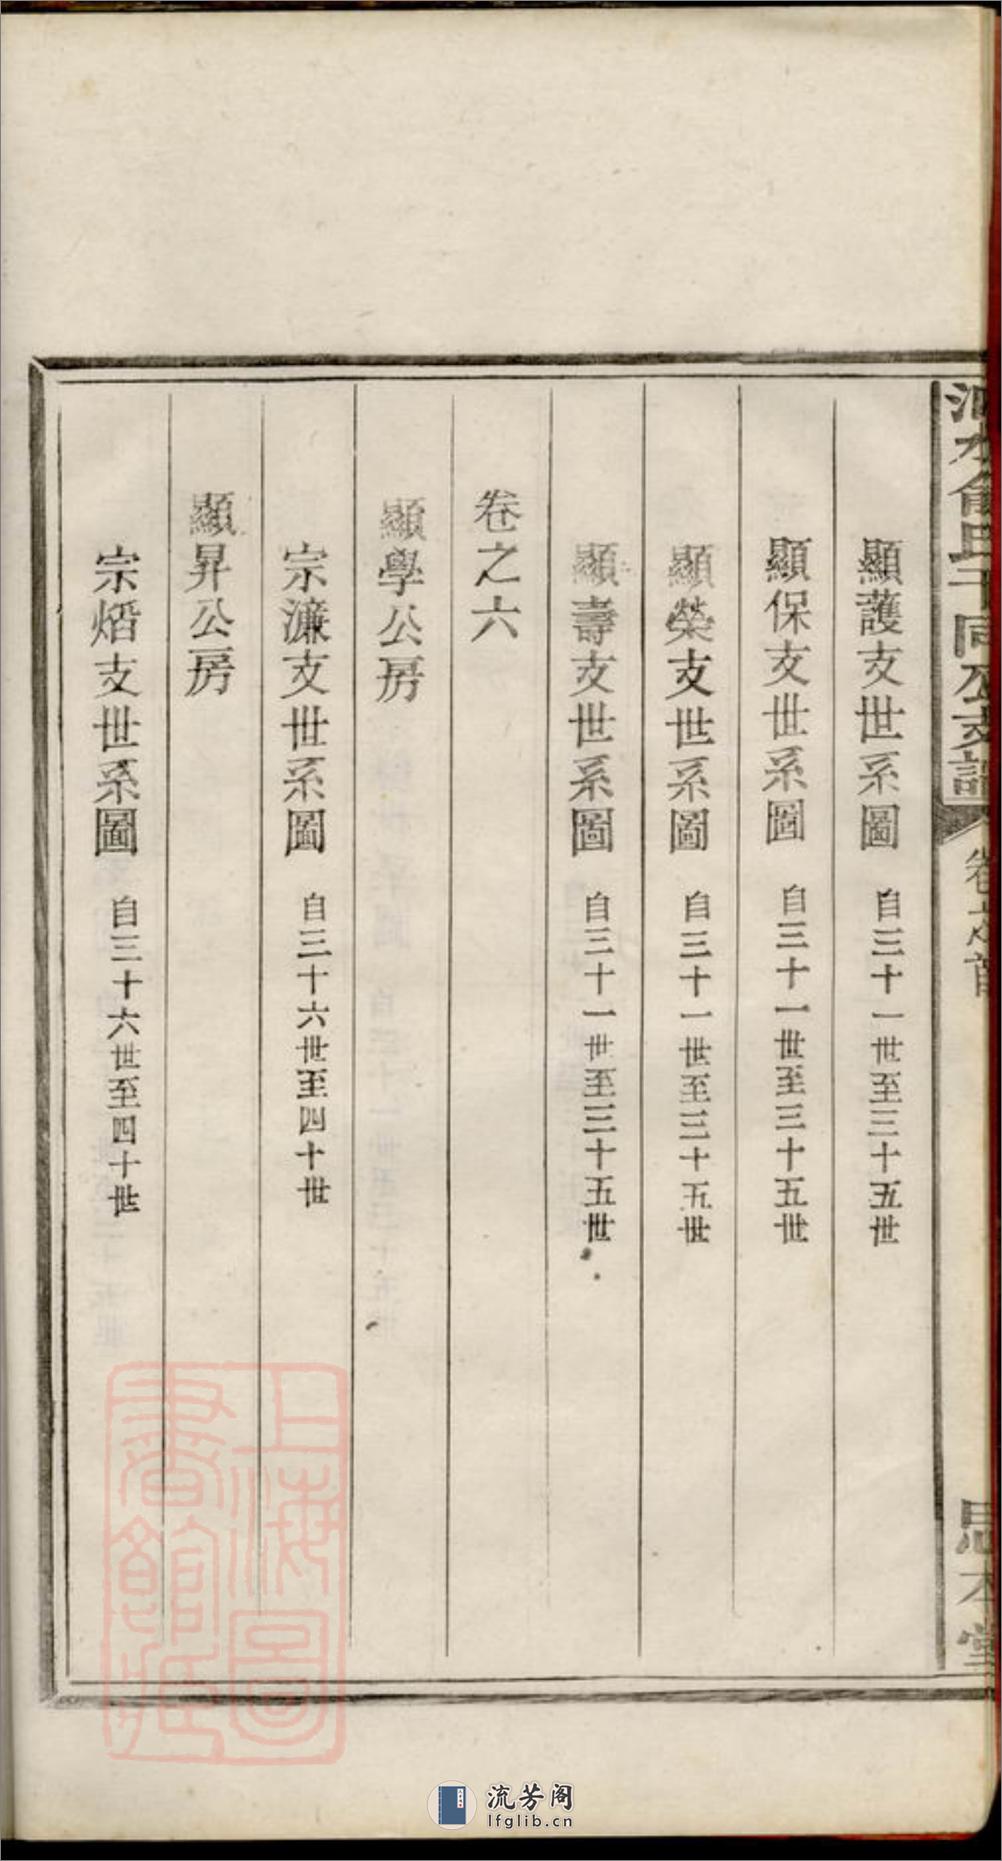 顯護支世系圖 自三十一世至三十五世
顯保支世系圖 自三十一世至三十五世
顯榮支世系圖 自三十一世至三十五世
顯壽支世系圖 自三十一世至三十五世
卷之六
顯學公房
宗濂支世系圖 自三十六世至四十世
顯昇公房
宗熖支世系圖 自三十六世至四十世
卷之首
思本堂
上海圖書館藏
流芳阁
lfglib.cn